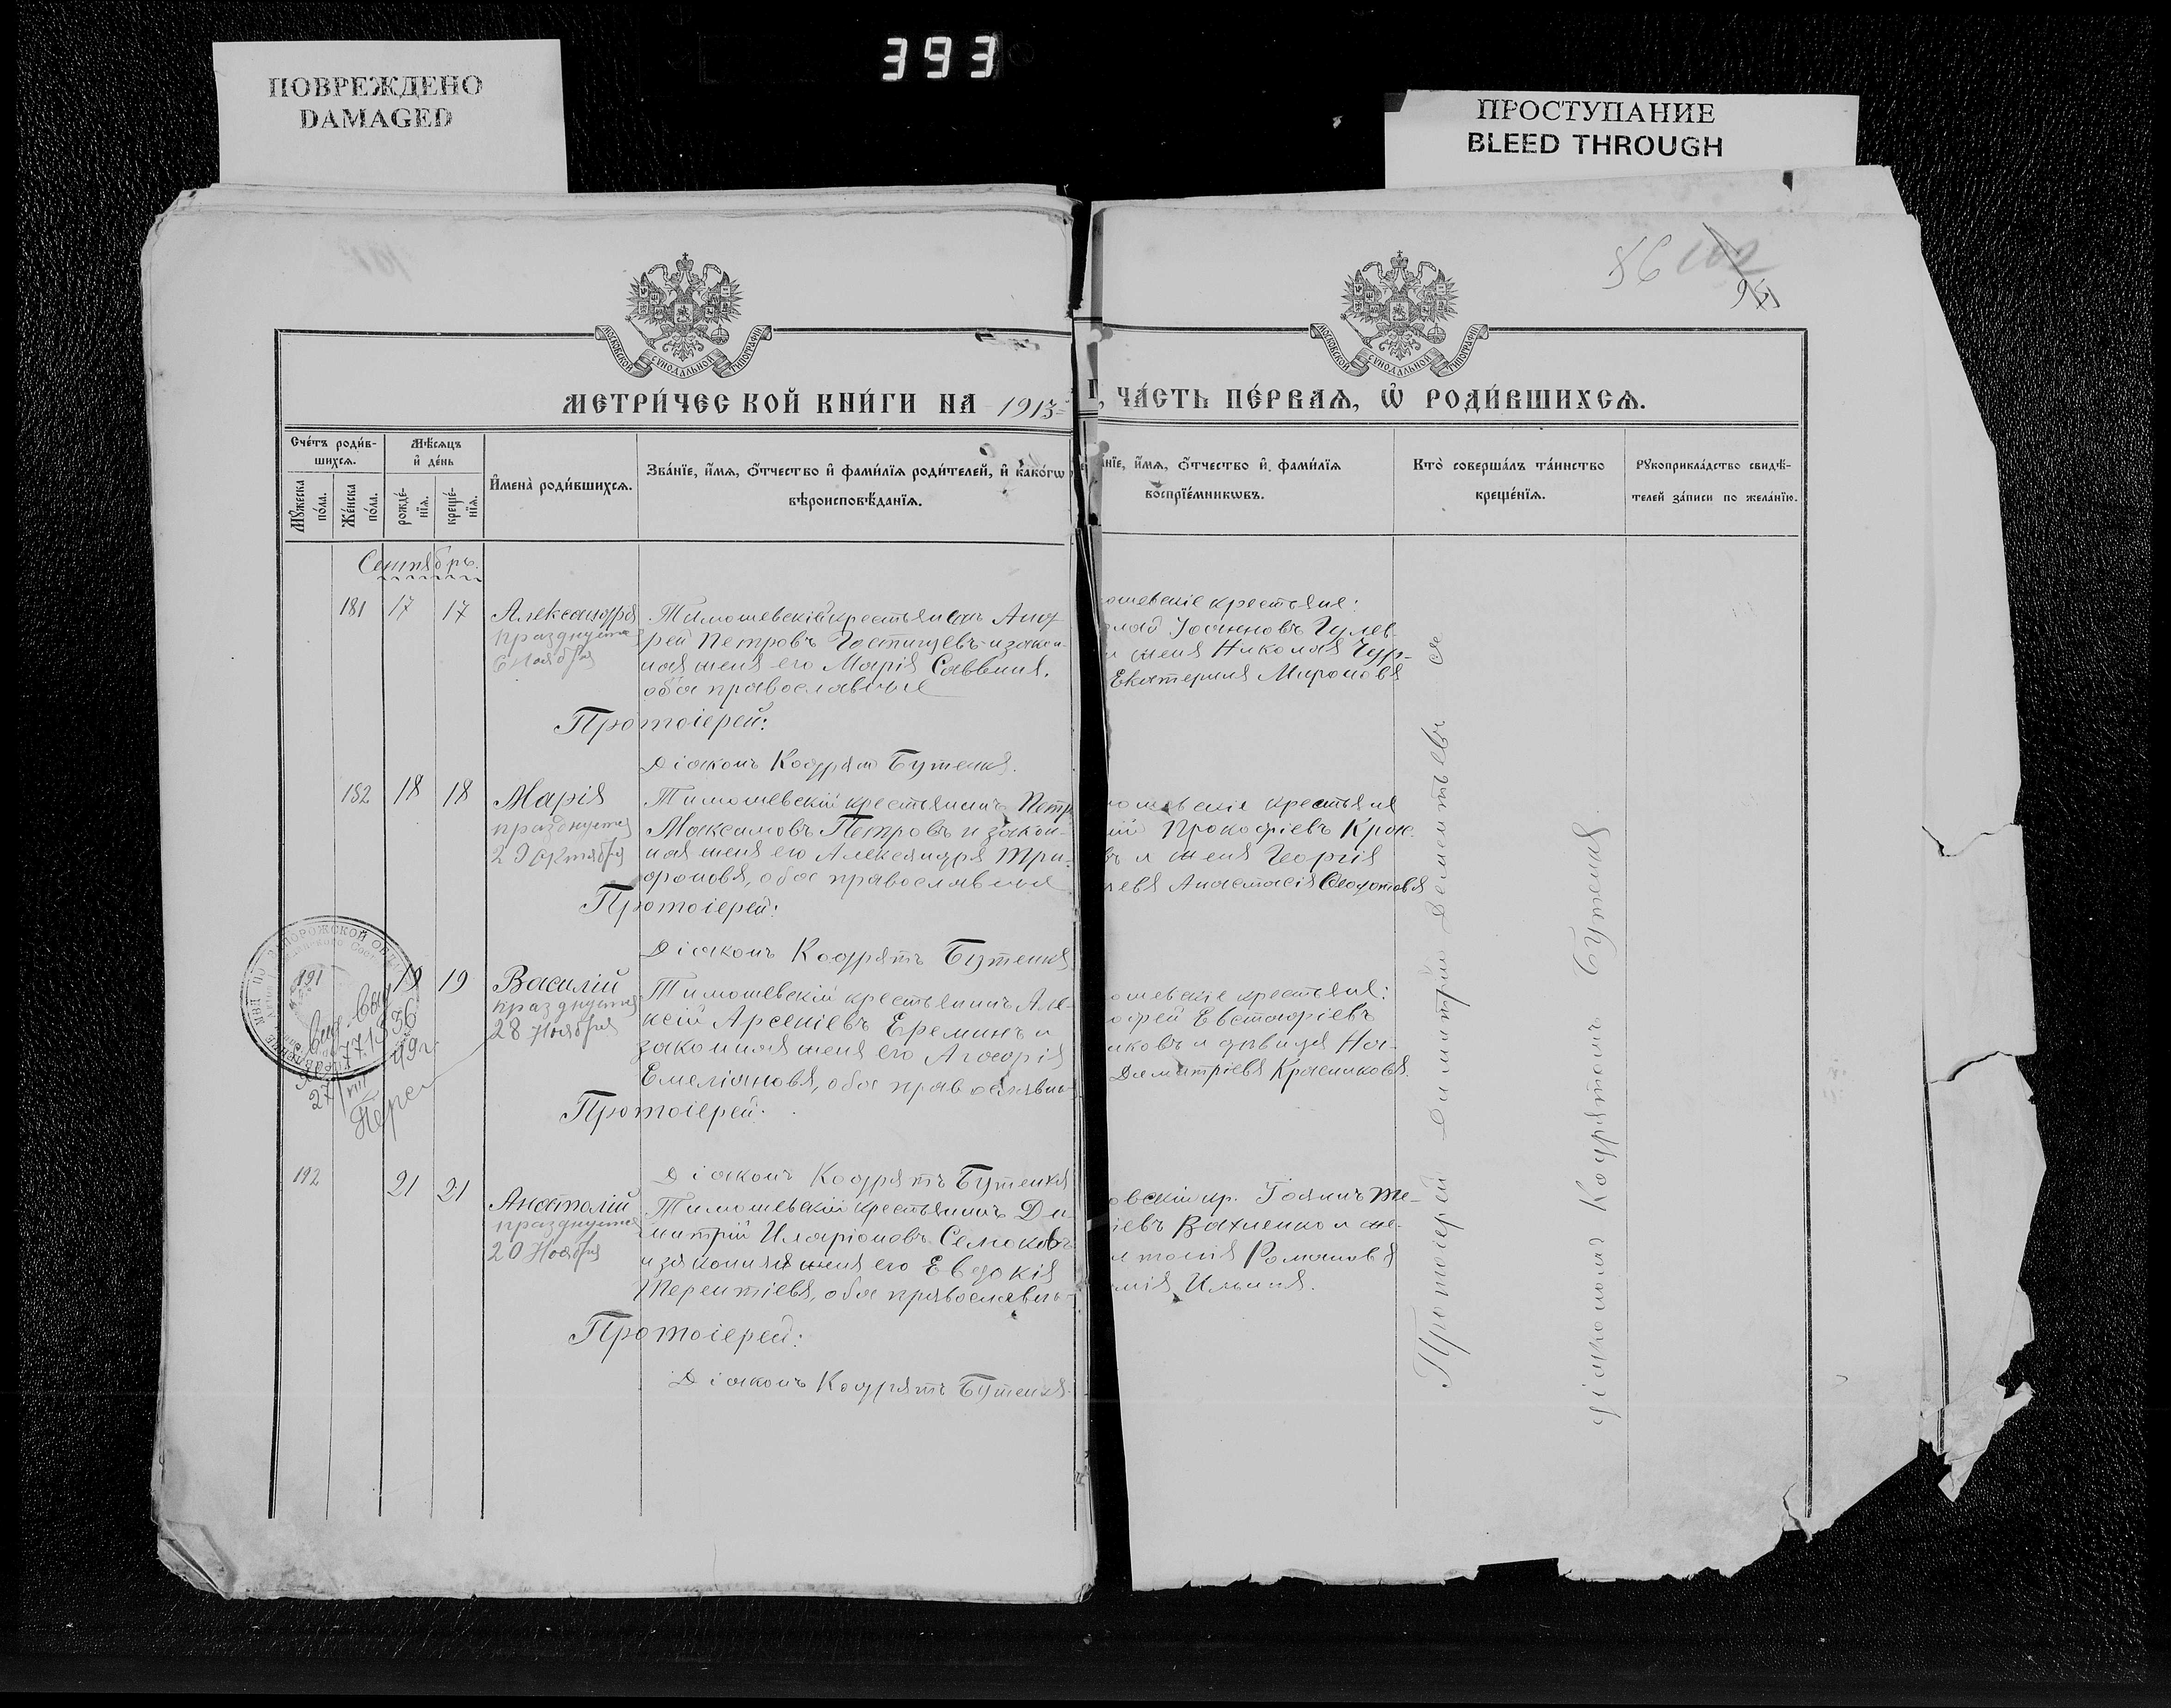 393
ПОВРЕЖДЕНО
DAMAGED
ПРОСТУПАНИЕ
BLEED THROUGH
86
МОСКОВСКОЙ СѴНОДАЛЬНОЙ ТИПОГРАФІИ
МОСКОВСКОЙ СѴНОДАЛЬНОЙ ТИПОГРАФІИ
МЕТРИ́ЧЕСКОЙ КНИ́ГИ НА 1913
ЧА́СТЬ ПЕ́РВАѦ, Ѡ҆ РОДИ́ВШИХСѦ.
Сче́тъ роди́в-
шихсѧ.
Мѣ́сѧцъ
и҆ де́нь
Мꙋ́жеска
по́ла.
Же́нска
по́ла.
рожде́-
нїѧ.
креще́-
нїѧ.
И҆мена̀ роди́вшихсѧ.
Зва́нїе, и҆́мѧ, ѻ҆́тчество и҆ фами́лїѧ роди́телей, и҆ како́гѡ
вѣроисповѣ́данїѧ.
а́нїе, и҆́мѧ, ѻ҆́тчество и҆ фами́лїѧ
воспрїе́мникѡвъ.
Кто̀ соверша́лъ та́инство
креще́нїѧ.
Рꙋкоприкла́дство свидѣ́-
телей за́писи по жела́нїю.
Сентябрь.
181 17 17 Александра
празднуется
6 Ноября
Тимошевскій крестьянинъ Анд
рей Петровъ Гостищевъ и закон-
ная жена его Марія Саввина,
оба православные
Протоіерей:
Діаконъ Кодратъ Бутенко.
ошевскіе крестьяне:
Іоанновъ Гулев-
жена Николая Чур-
Екатерина Миронова
182 18 18 Марія
празднуется
29 Октября
Тимошевскій крестьянинъ Петр
Максимовъ Петровъ и закон-
ная жена его Александра Три-
фонова, оба православные
Протоіерей:
Діаконъ Кодратъ Бутенко
мошевскіе крестьяне
Прокофіевъ Крас.
въ и жена Георгія
Анастасія Феодотова
191 19 19 Василій
празднуется
28 Ноября
Тимошевскій крестьянинъ Але-
ксій Арсеніевъ Ереминъ и
законная жена его Агафія
Емеліанова, оба православны
Протоіерей:
Діаконъ Кодратъ Бутенко
ошевскіе крестьяне:
офей Евстафіевъ
иковъ и дѣвица На-
Димитріева Красникова.
192 21 21 Анатолій
празднуется
20 Ноября
Тимошевскій крестьянинъ Ди
митрій Иларіоновъ Семоковъ
и законная жена его Евдокія
Терентіева, оба православны
Протоіерей:
Діаконъ Кодратъ Бутенко.
овскій кр. Іоаннъ Те-
іевъ Вахненко и же-
Романова
Ильина.
Протоіерей Димитрій Дементьевъ съ
діакономъ Кодратомъ Бутенко.